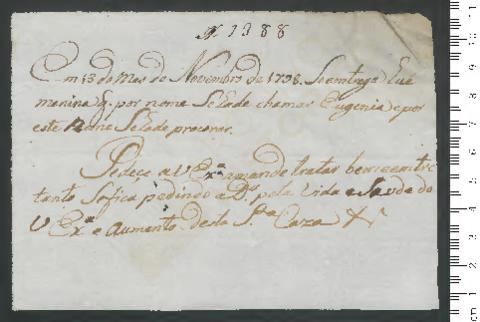 N. 1388
Em 13 do Mes de Novembro de 1798. Se entrega hua
menina q. por nome Se hade chamar Eugenia e por
este Nome Se hade procurar.
Pedece a V Exª a mande tratar bem e em tre
tanto Se fica pedindo a D.s pela Vida e Saude de
V Exª e aumento desta S.ta Caza
cm 1 2 3 4 5 6 7 8 9 10 11